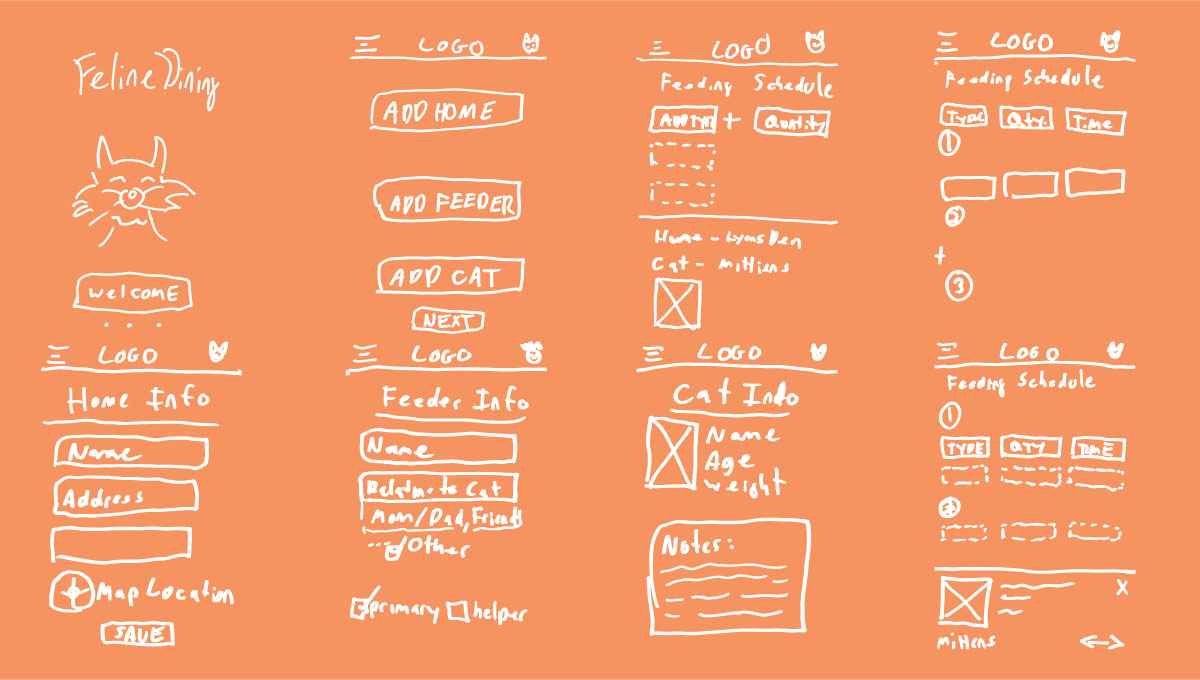 Feline Dining
welcome
LOGO
ADD HOME
ADD FEEDER
ADD CAT
NEXT
LOGO
Feeding Schedule
+ Quantity
Home - Lyons Den
Cat - mittens
LOGO
Feeding Schedule
TYPE Qty. Time
1
2
+
3
LOGO
Home Info
Name
Address
Map Location
SAVE
LOGO
Feeder Info
Name
to Cat
Mom/Dad, Friends
Other
primary helper
LOGO
Cat Info
Name
Age
weight
Notes:
LOGO
Feeding Schedule
1
TYPE QTY TIME
2
X
mittens